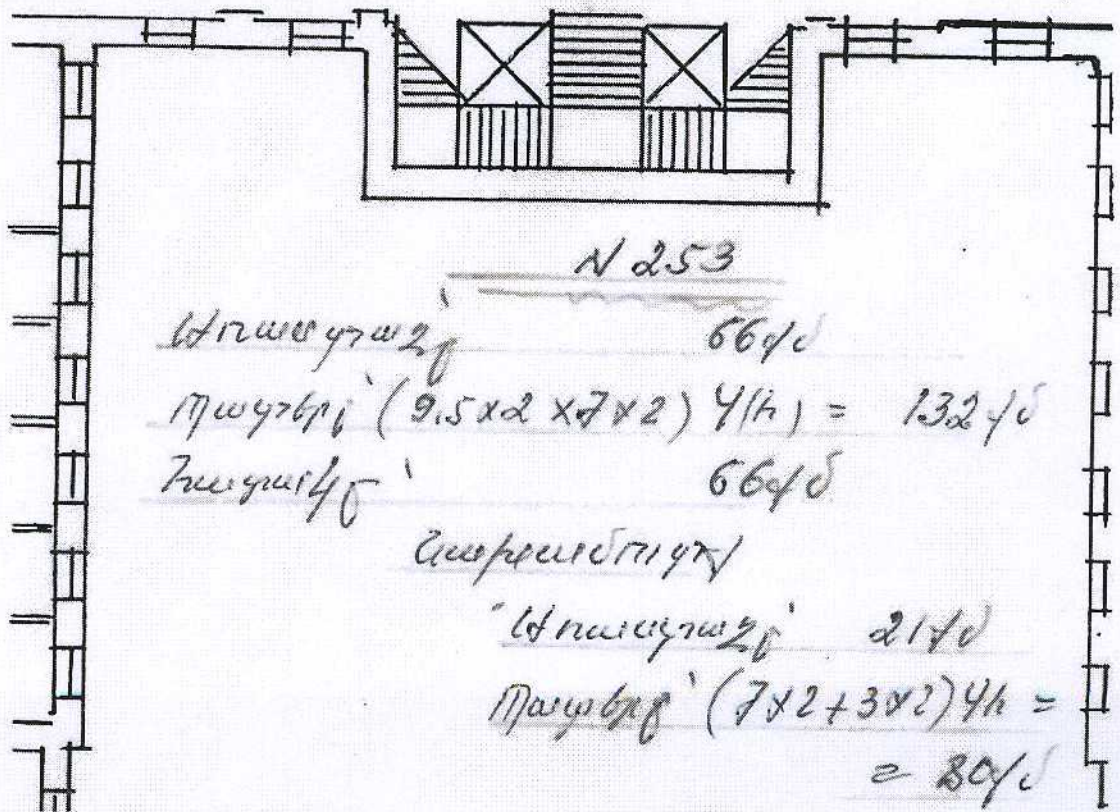 N 253
Առաստաղը՝ 66 ք/մ
Պատերը՝ (9.5x2 x7x2) 4(h) = 132 ք/մ
Հատակը՝ 66 ք/մ
Առաստաղը՝ 21 ք/մ
Պատերը՝ (7x2+3x2)4h =
= 80 ք/մ